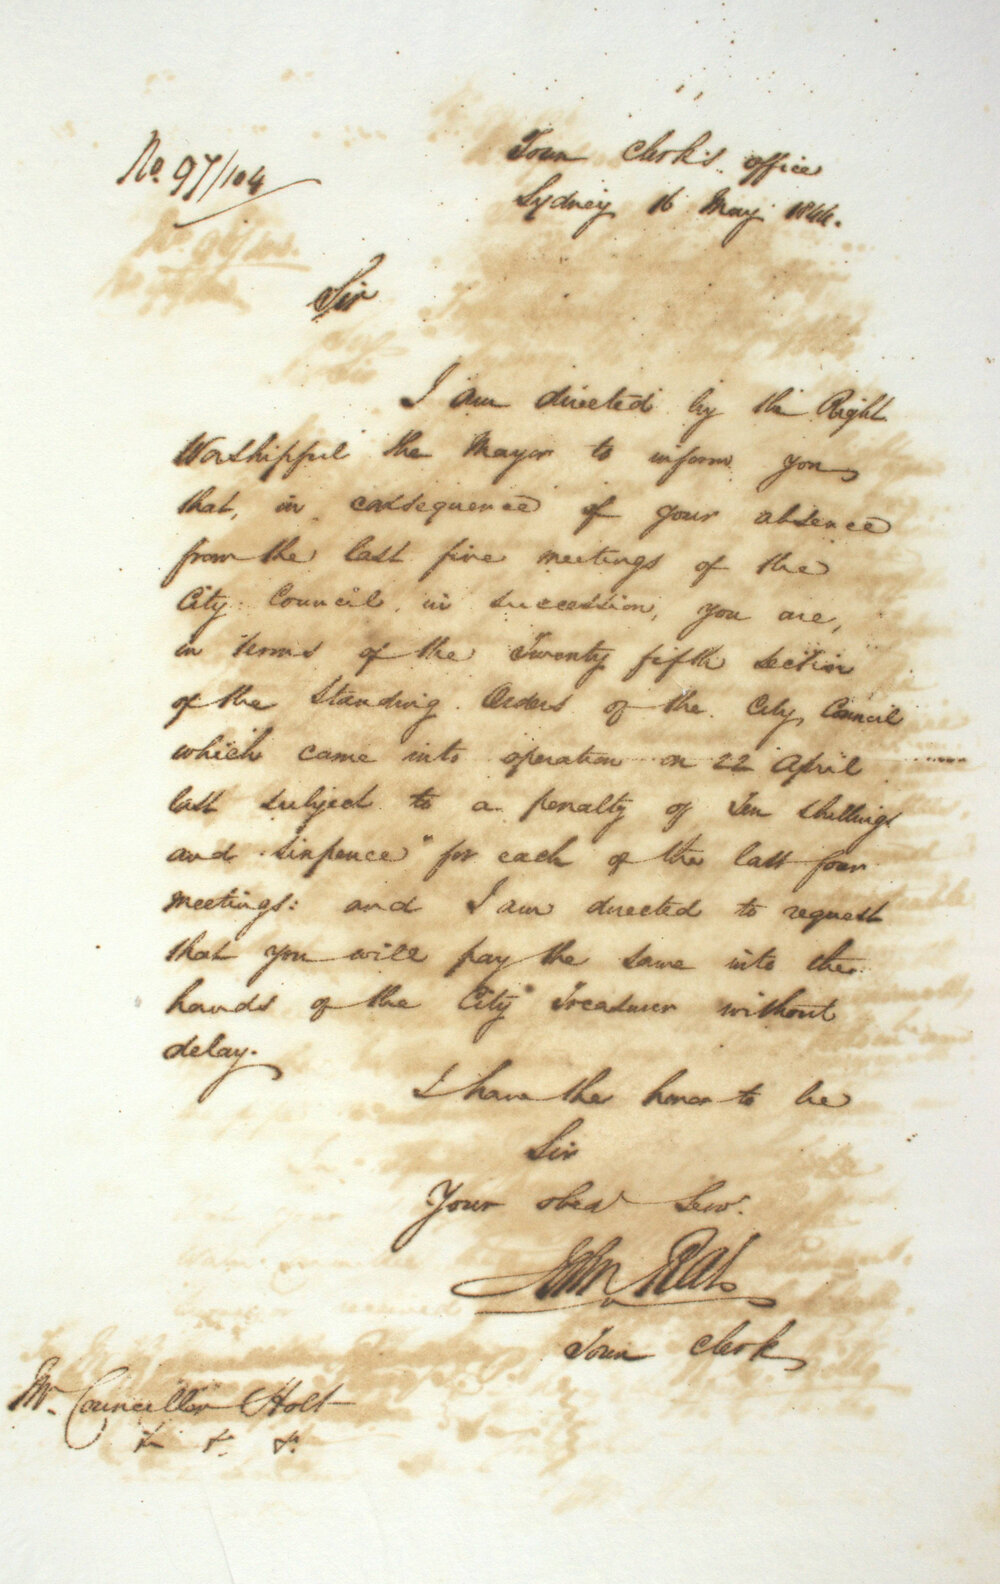 No. 97/104
Town Clerk's office
Sydney 16 May 1844.
Sir
I am directed by the Right
Worshipful the Mayor to inform you
that, in consequence of your absence
from the last five meetings of the
City Council in succession, you are,
in terms of the Twenty fifth section
of the Standing Orders of the City Council
which came into operation on 22 April
last subject to a penalty of Ten shillings
and sixpence" for each of the last four
meetings: and I am directed to request
that you will pay the same into the
hands of the City Treasurer without
delay.
I have the honor to be
Sir
Your obed Serv.
John
Town Clerk
Mr. Councillor Holt
&c &c &c